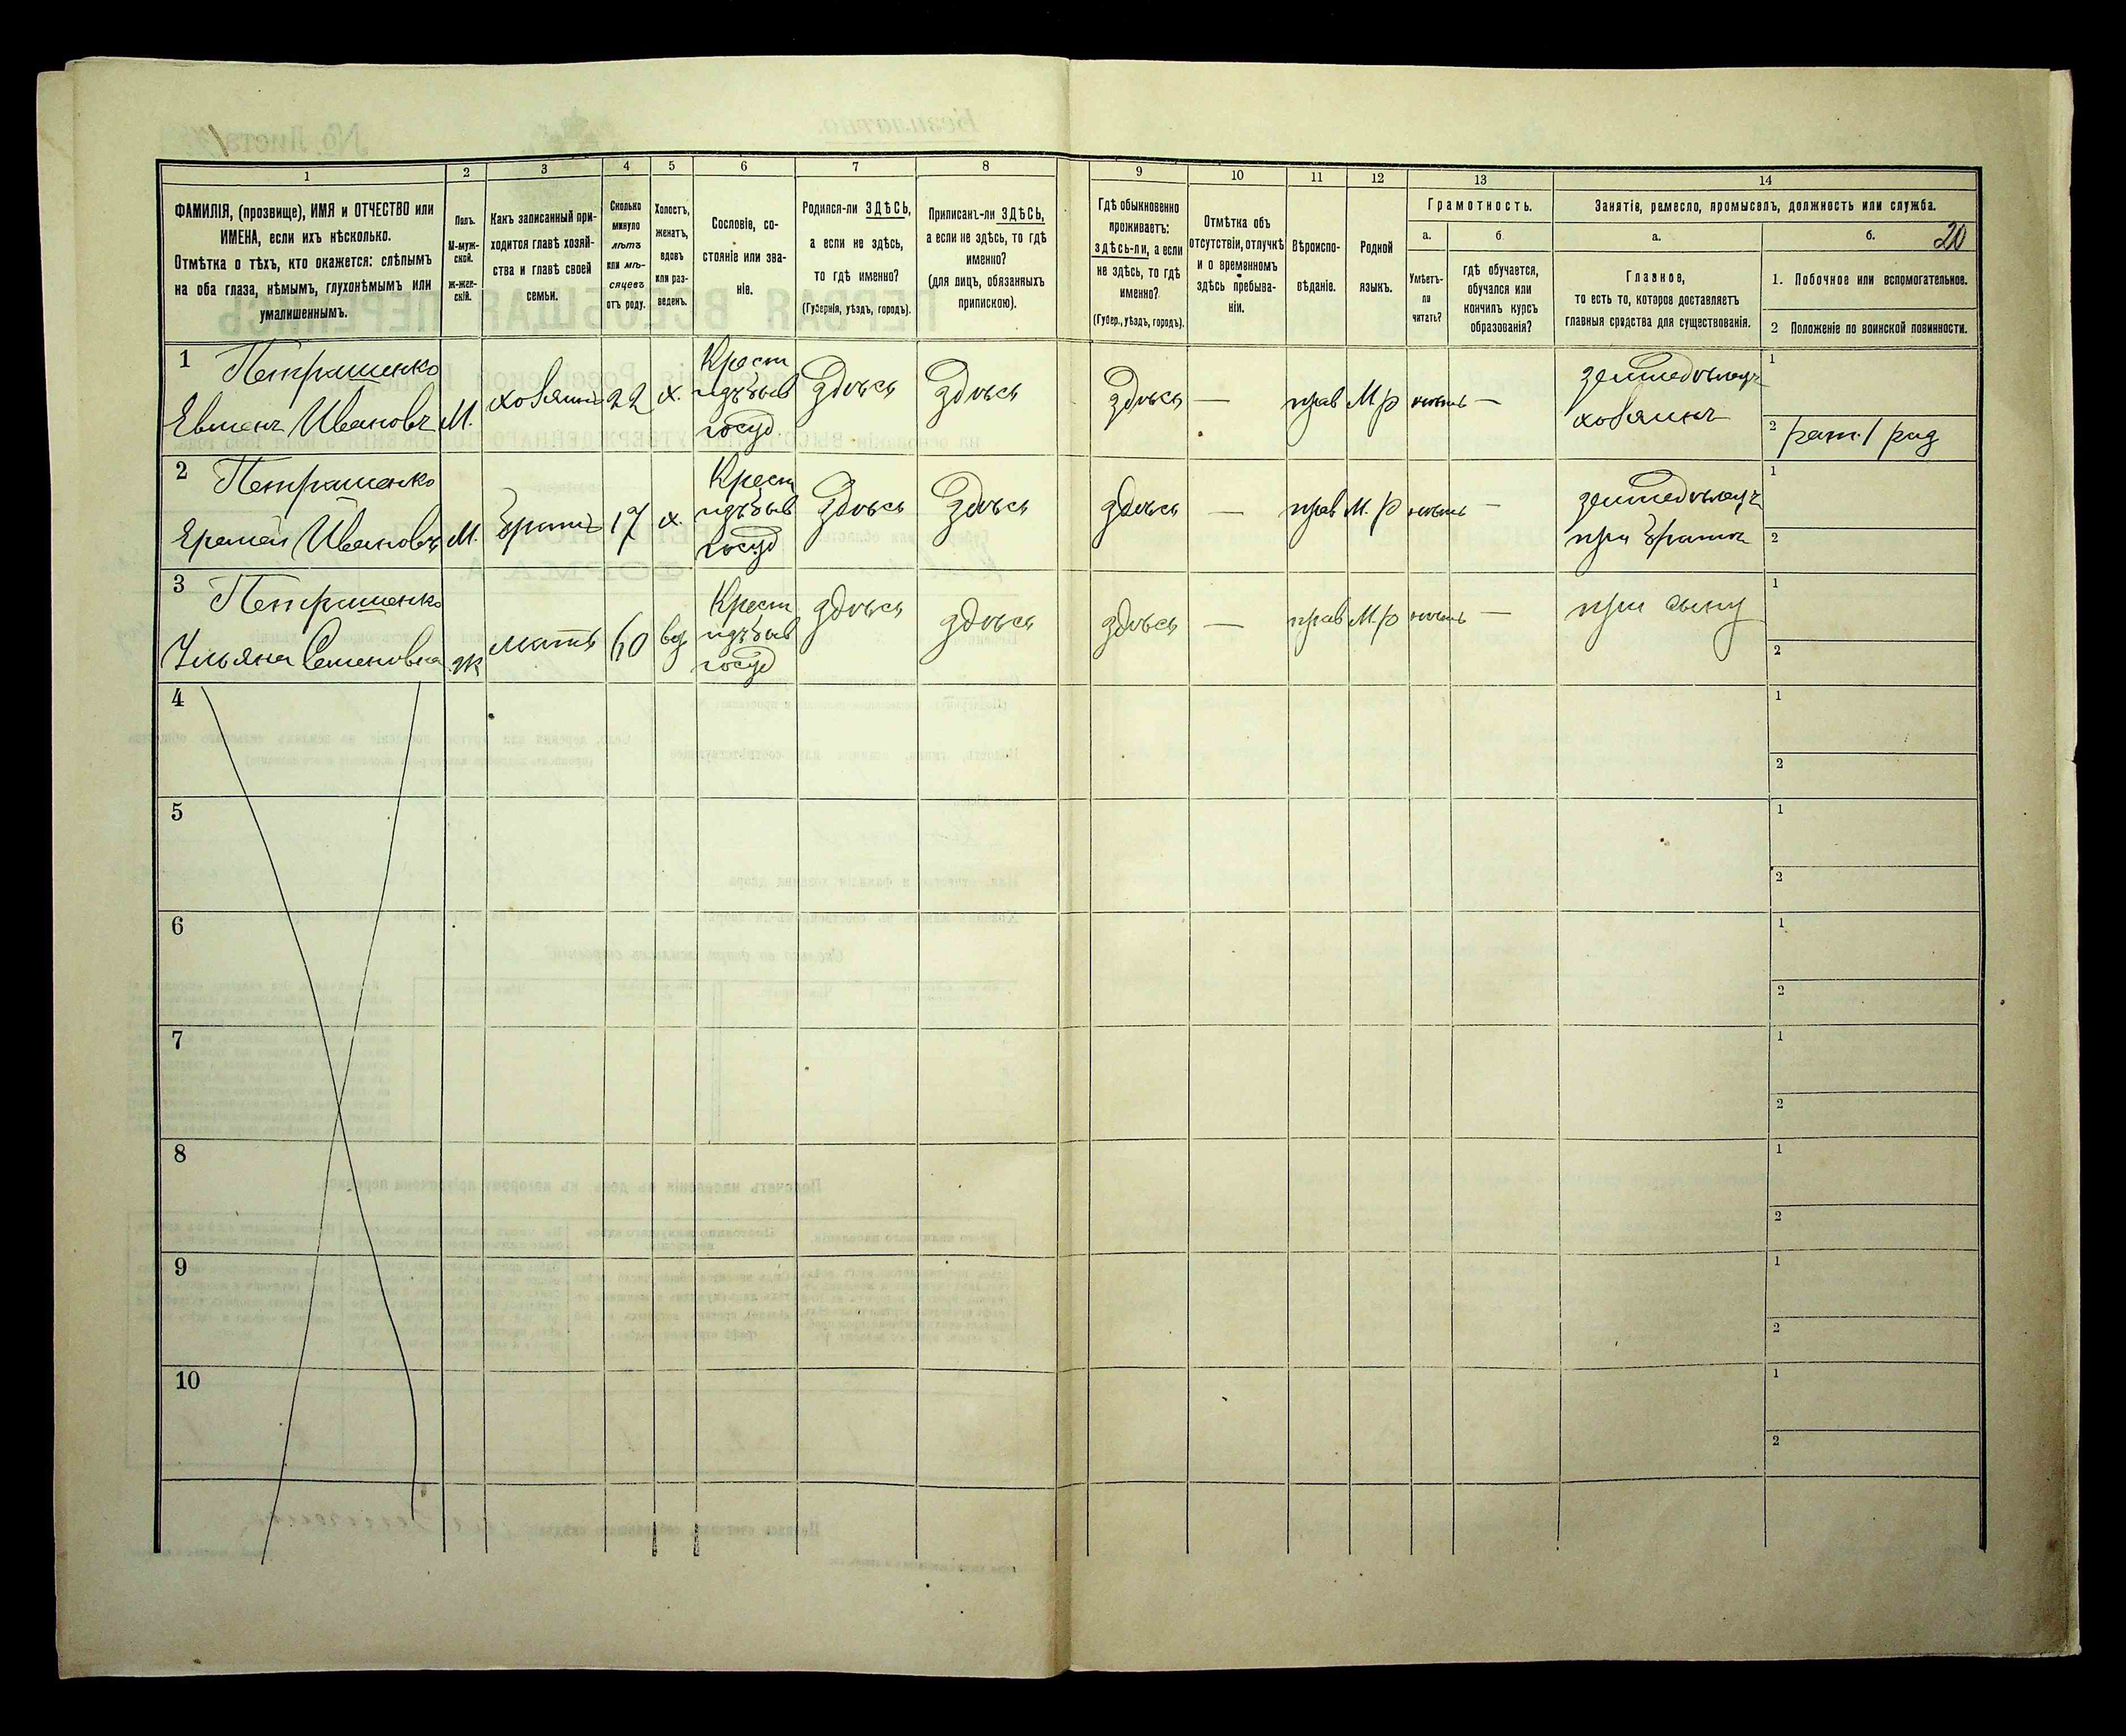 1
2
3
4
5
6
7
8
9
10
11
12
13
14
ФАМИЛІЯ, (прозвище), ИМЯ и ОТЧЕСТВО или
ИМЕНА, если ихъ нѣсколько.
Отмѣтка о тѣхъ, кто окажется: слѣпымъ
на оба глаза, нѣмымъ, глухонѣмымъ или
умалишеннымъ.
Полъ.
М-муж-
ской.
ж-жен-
скій.
Какъ записанный при-
ходится главѣ хозяй-
ства и главѣ своей
семьи.
Сколько
минуло
лѣтъ
или мѣ-
сяцевъ
отъ роду.
Холостъ,
женатъ,
вдовъ
или раз-
веденъ.
Сословіе, со-
стояніе или зва-
ніе.
Родился-ли ЗДѢСЬ,
а если не здѣсь,
то гдѣ именно?
(Губернія, уѣздъ, городъ).
Приписанъ-ли ЗДѢСЬ,
а если не здѣсь, то гдѣ
именно?
(для лицъ, обязанныхъ
припискою).
Гдѣ обыкновенно
проживаетъ:
здѣсь-ли, а если
не здѣсь, то гдѣ
именно?
(Губер., уѣздъ, городъ).
Отмѣтка объ
отсутствіи, отлучкѣ
и о временномъ
здѣсь пребыва-
ніи.
Вѣроиспо-
вѣданіе.
Родной
языкъ.
Грамотность.
а.
б.
Умѣетъ-
ли
читать?
гдѣ обучается,
обучался или
кончилъ курсъ
образованія?
Занятіе, ремесло, промыселъ, должность или служба.
а.
б.
20
Главное,
то есть то, которое доставляетъ
главныя средства для существованія.
1. Побочное или вспомогательное.
2 Положеніе по воинской повинности.
1 Петрашенко
Евменъ Ивановъ
М.
хозяинъ
22
х.
Крест
изъ быв
госуд
здѣсь
здѣсь
здѣсь
—
прав
М р
нѣтъ
—
земледѣлецъ
хозяинъ
1
2 рат. 1 раз
2 Петрашенко
Еремей Ивановъ
М.
братъ
17
х.
Крест
изъ быв
госуд
здѣсь
здѣсь
здѣсь
—
прав
М. р
нѣтъ
—
земледѣлецъ
при братѣ
1
2
3 Петрашенко
Ульяна Семеновна
ж
мать
60
вд
Крест
изъ быв
госуд
здѣсь
здѣсь
здѣсь
—
прав
М.р
нѣтъ
—
при сыну
1
2
4
1
2
5
1
2
6
1
2
7
1
2
8
1
2
9
1
2
10
1
2